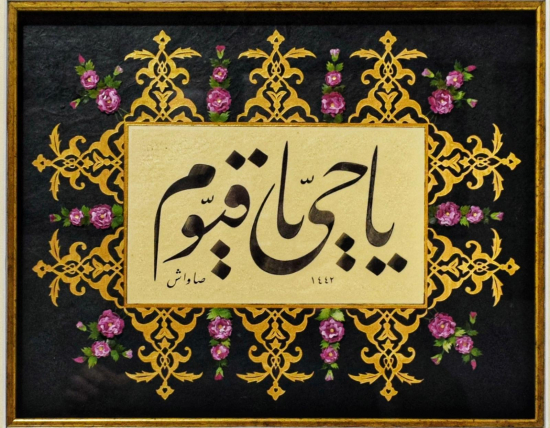 يا حيّ يا قيّوم
١٤٤٢
صاواش